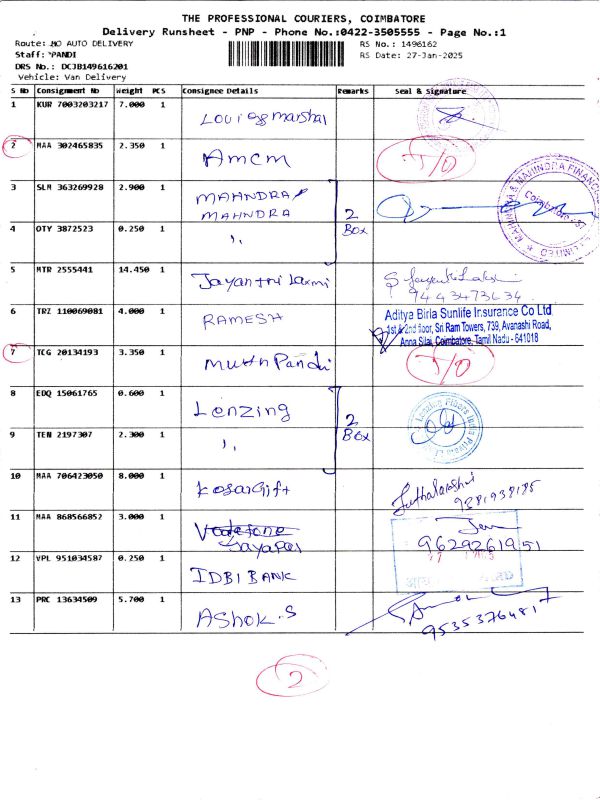 THE PROFESSIONAL COURIERS, COIMBATORE
Delivery Runsheet - PNP - Phone No.:0422-3505555 - Page No.:1
Route: BO AUTO DELIVERY
RS No.: 1496162
Staff: PANDI
RS Date: 27-Jan-2025
DRS No.: DCJB149616201
Vehicle: Van Delivery
S No Consignment No Weight PCS Consignee Details Remarks Seal & Signature
1 KUR 7003203217 7.000 1 Louis Marshal
2 MAA 302465835 2.350 1 Amcm T/O
3 SLM 363269928 2.900 1 MAHNDRA
MAHNDRA
4 OTY 3872523 0.250 1 ,, 2 Box
MAHINDRA & MAHINDRA FINANCIAL
Coimbatore
5 MTR 2555441 14.450 1 Jayanthi Laxmi
9443473634
6 TRZ 110069081 4.000 1 RAMESH
Aditya Birla Sunlife Insurance Co Ltd
1st & 2nd floor, Sri Ram Towers, 739, Avanashi Road,
Anna Silai, Coimbatore, Tamil Nadu - 641018
7 TCG 20134193 3.350 1 Muthu Pandi T/O
8 EDQ 15061765 0.600 1 Lenzing
9 TEN 2197307 2.300 1 ,, 2 Box
Lenzing Fibers India Private
10 MAA 706423050 8.000 1 KosarGift
9381938185
11 MAA 868566852 3.000 1 Vodefone
Jayapal
9629261951
12 VPL 951034587 0.250 1 IDBI BANK
13 PRC 13634509 5.700 1 Ashok.S
95353764817
2